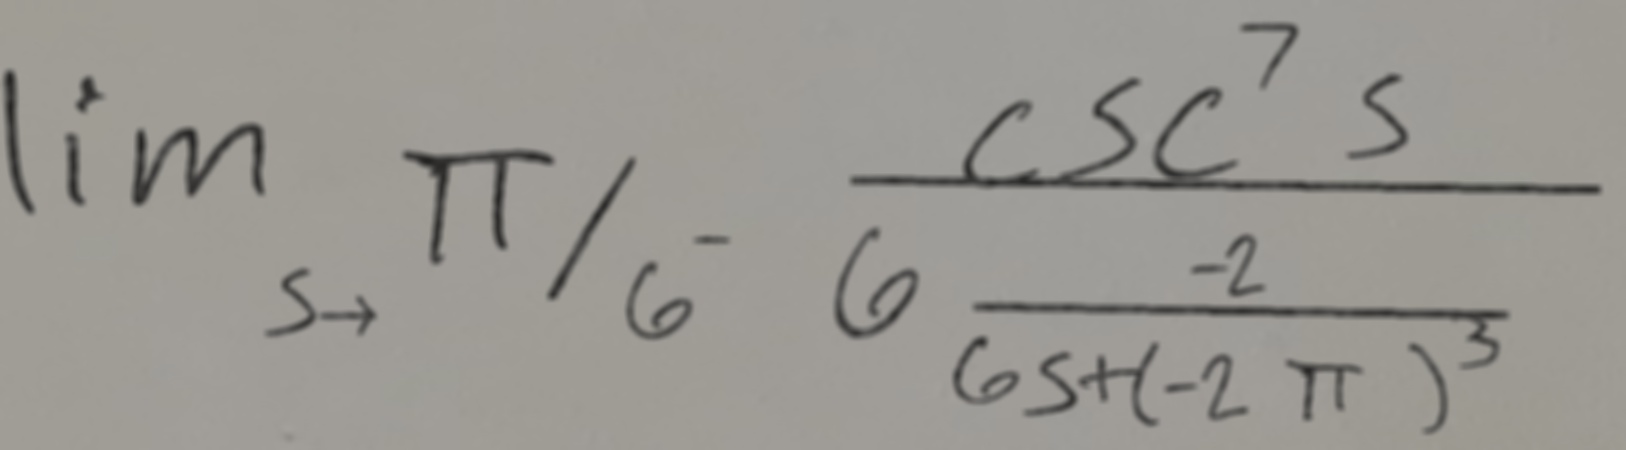 \lim_{s \to \pi/6^-} \frac{\csc^7 s}{6 \frac{-2}{6s+(-2\pi)^3}}